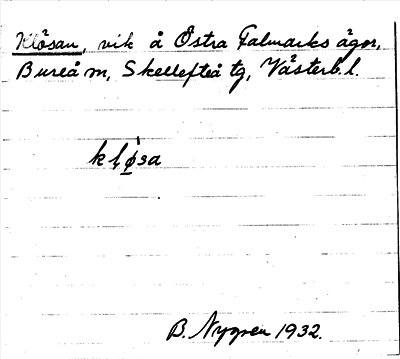 Klösan, vik å Östra Falmarks ägor,
Bureå m, Skellefteå tg, Västerb. l.
klø̀sa
B. Nygren 1932.